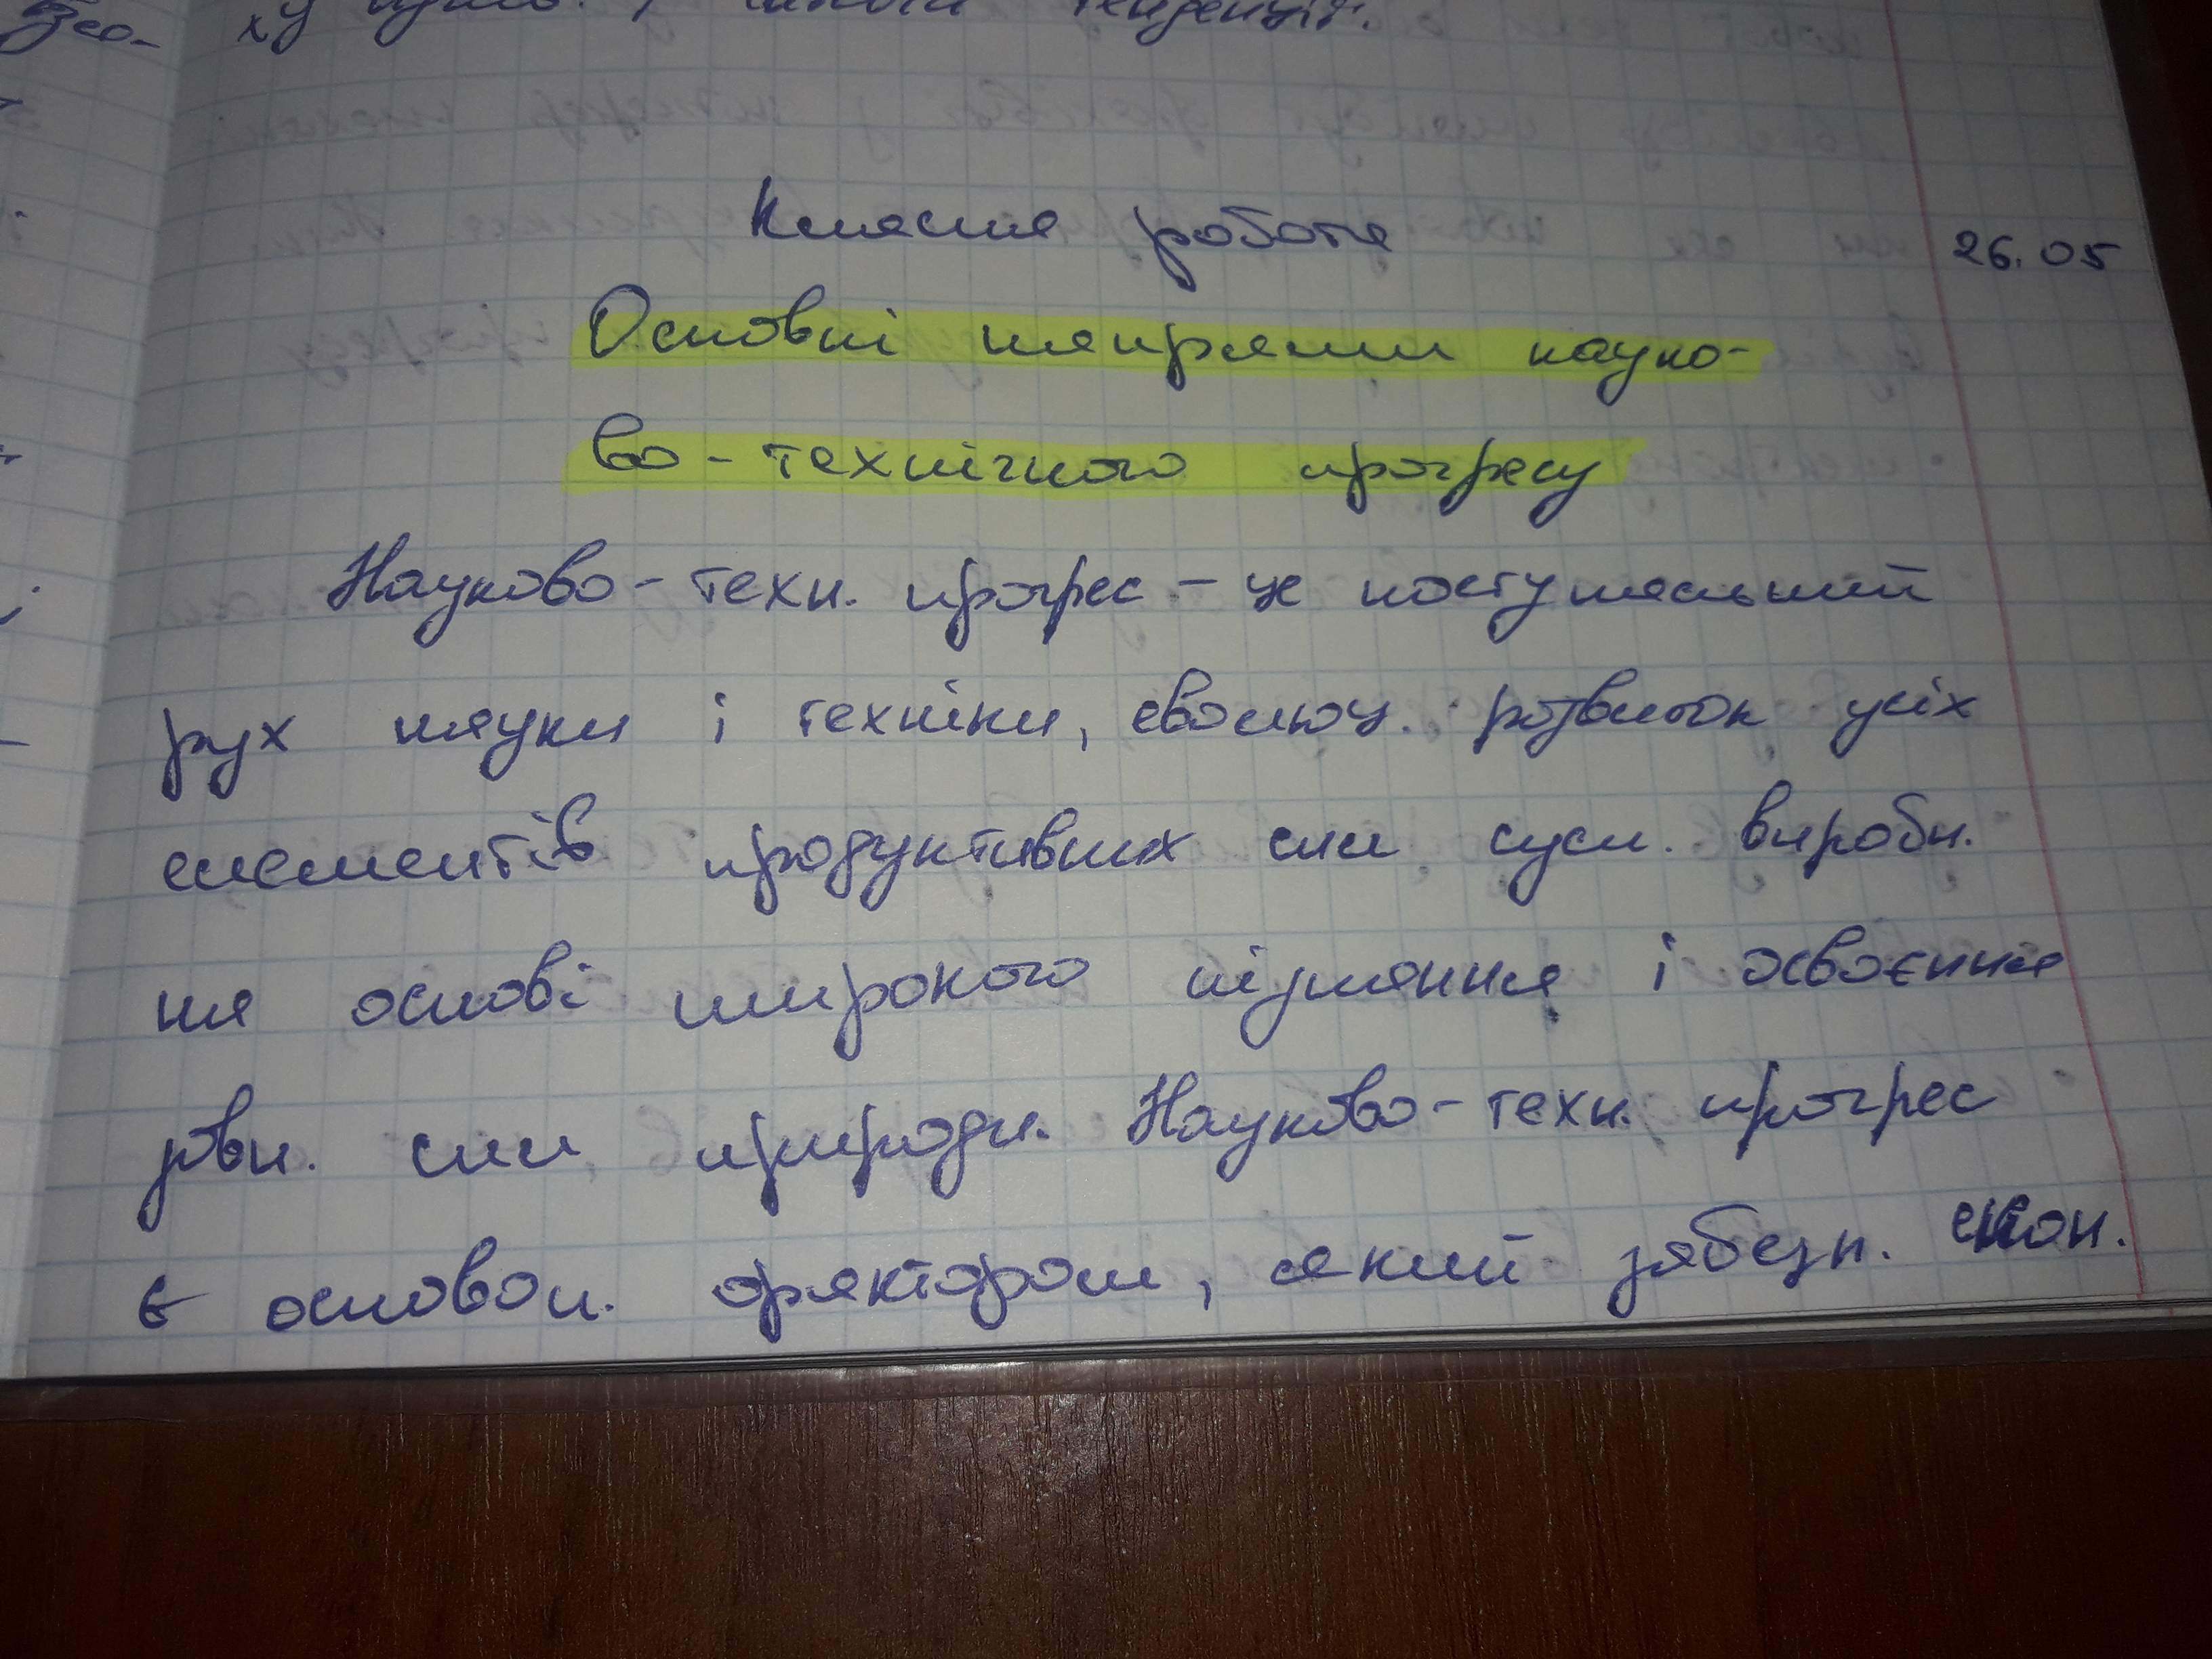 тенденцій.
Класна робота 26.05
Основні напрями науко-
во-технічного прогресу
Науково-техн. прогрес – це поступальний
рух науки і техніки, еволюц. розвиток усіх
елементів продуктивних сил сусп. виробн.
на основі широкого пізнання і освоєння
зовн. сил природи. Науково-техн. прогрес
є основоп. фактором, який забезп. екон.